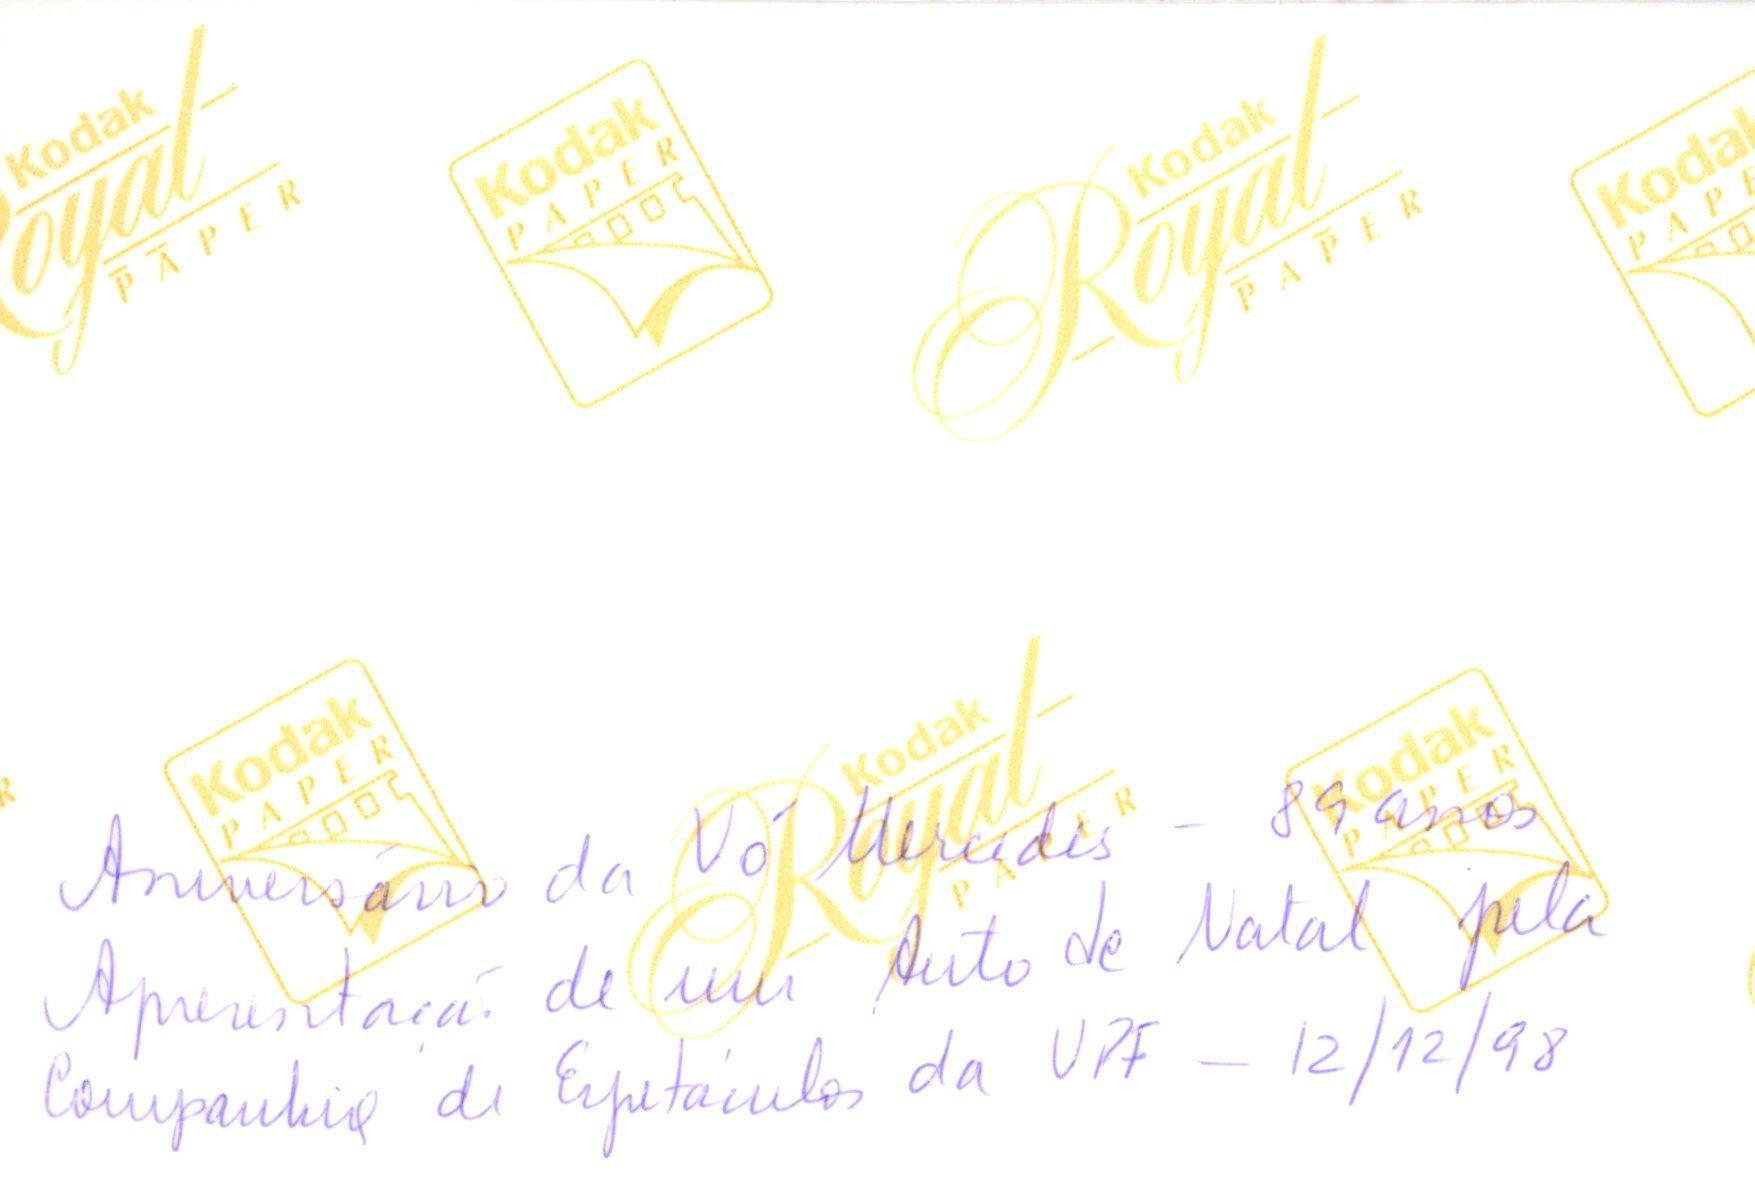 Kodak
Royal
PAPER
Kodak
PAPER
Kodak
Royal
PAPER
Kodak
PAPER
Kodak
PAPER
Kodak
Royal
PAPER
Kodak
PAPER
Aniversário da Vó Mercedes - 89 anos
Apresentação de um Auto de Natal pela
Companhia de Espetáculos da UPF - 12/12/98